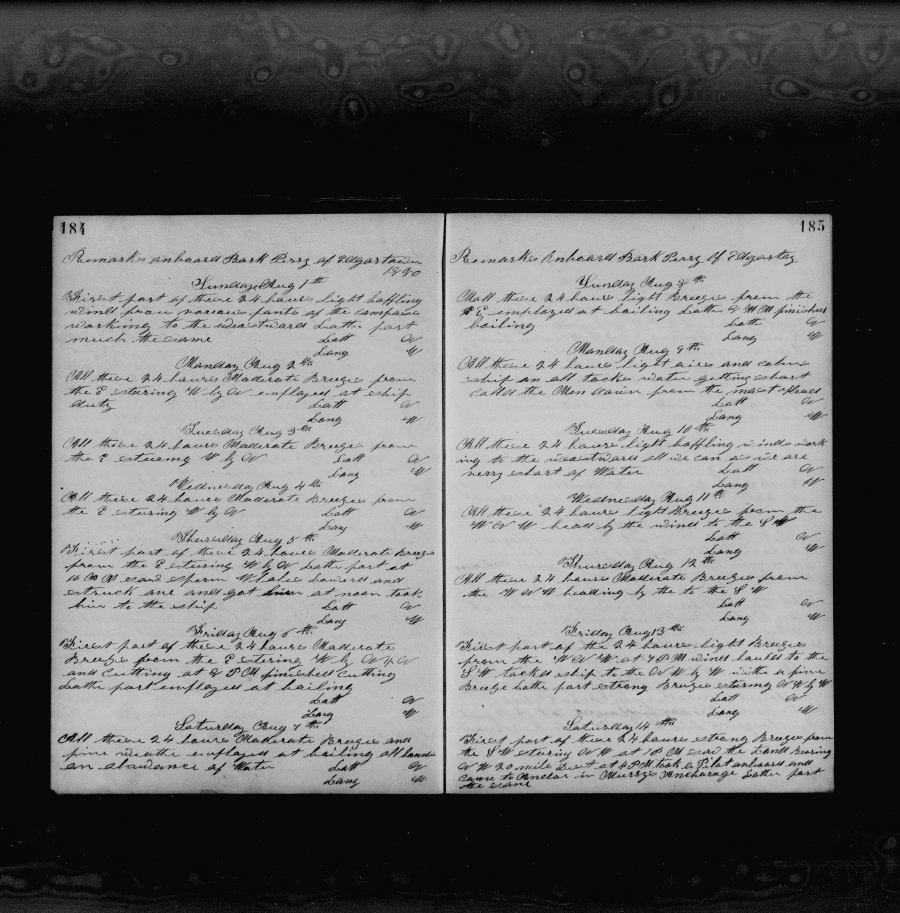 184
Remarks onboard Bark Perry of Edgartown
1880
Sunday Aug 1th
First part of these 24 hours light baffling
winds from various parts of the compass
working to the westward Latter part
much the same Latt N
Long W
Monday Aug 2th
All these 24 hours Moderate Breezes from
the E stering W by N employed at ship
duty Latt N
Long W
Tuesday Aug 3th
All these 24 hours Moderate Breezes from
the E stering W by N Latt N
Long W
Wednesday Aug 4th
All these 24 hours Moderate Breezes from
the E stering W by N Latt N
Long W
Thursday Aug 5th
First part of these 24 hours Moderate Breezes
from the E stering W by N Latter part at
10 AM saw sperm Whales lowered and
struck one and got him at noon took
him to the ship Latt N
Long W
Friday Aug 6th
First part of these 24 hours Moderate
Breezes from the E stering W by N
and cutting at 8 PM finished cutting
Latter part employed at boiling
Latt N
Long W
Saturday Aug 7th
All these 24 hours Moderate Breezes and
fine weather employed at boiling all hands
on alowance of Water Latt N
Long W
185
Remarks Onboard Bark Perry of Edgarton
Sunday Aug 8th
All these 24 hours light Breezes from the
E employed at boiling Latter 8 AM finished
boiling Latt N
Long W
Monday Aug 9th
All these 24 hours light aires and calms
ship on all tacks water getting short
called the Men down from the mast head
Latt N
Long W
Tuesday Aug 10th
All these 24 hours light baffling winds work
ing to the westward all we can as we are
verry short of Water Latt N
Long W
Wednesday Aug 11th
All these 24 hours light Breezes from the
W N W head by the wind to the S W
Latt N
Long W
Thursday Aug 12th
All these 24 hours Moderate Breezes from
the W N W heading by the to the S W
Latt N
Long W
Friday Aug 13th
First part of the 24 hours light Breezes
from the W N W at 4 PM wind hauled to the
S W tacked ship to the N W by W with a fine
Breeze Latter part strong Breezes stering N W by W
Latt N
Long W
Saturday 14th
First part of these 24 hours strong Breezes from
the S W stering N W at 1 PM saw the Land Bearing
N W 20 mile Dist at 4 PM took a Pilot onboard and
came to Anchor in Anchorage Latter part
the same